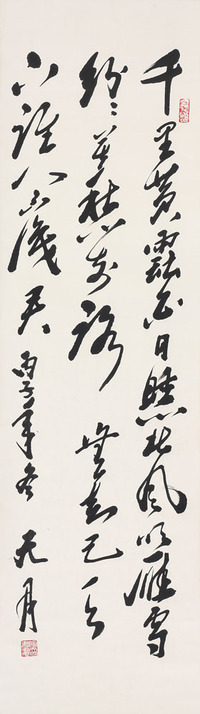 千里黄云白日曛北风吹雁雪
纷纷莫愁前路无知己天
下谁人不识君丙子年冬元月